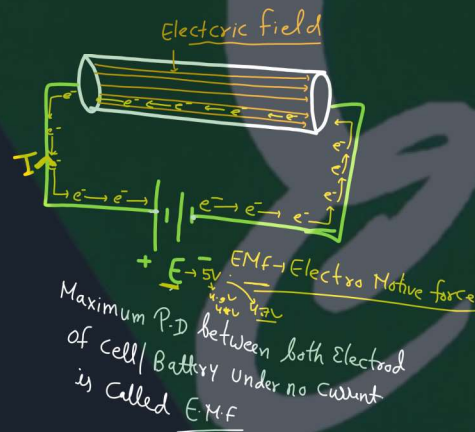 Electcric field
e⁻ e⁻ e⁻ e⁻ e⁻
e⁻
e⁻
e⁻
I
e⁻
e⁻
e⁻
e⁻ → e⁻ →
e⁻ → e⁻ → e⁻
+ −
E → 5V
EMf → Electro Motive force
4.9V
4.8V
4.7V
Maximum P.D between both Electrod
of cell/ Battry under no Current
is called E.M.F